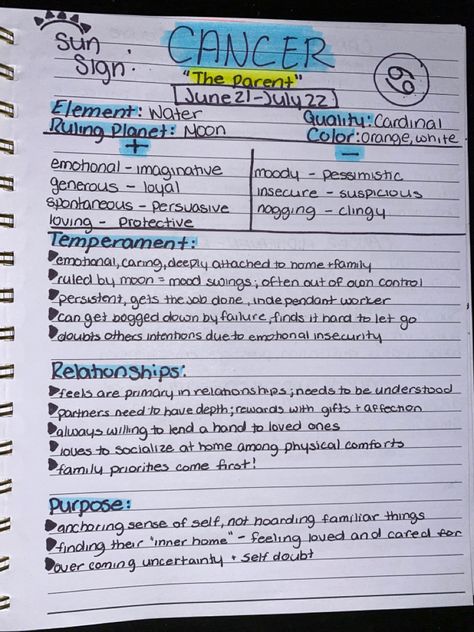 Sun Sign:
CANCER
"The Parent"
June 21-July 22
Element: Water
Quality: Cardinal
Ruling Planet: Moon
Color: orange, white
+
emotional - imaginative
generous - loyal
spontaneous - persuasive
loving - Protective
-
moody - pessimistic
insecure - suspicious
nagging - clingy
Temperament:
emotional, caring, deeply attached to home + family
ruled by moon = mood swings; often out of own control
persistent, gets the job done, independant worker
can get bogged down by failure, finds it hard to let go
doubts others intentions due to emotional insecurity
Relationships:
feels are primary in relationships; needs to be understood
partners need to have depth; rewards with gifts + affection
always willing to lend a hand to loved ones
loves to socialize at home among physical comforts
family priorities come first!
Purpose:
anchoring sense of self, not hoarding familiar things
finding their "inner home" - feeling loved and cared for
over coming uncertainty + self doubt